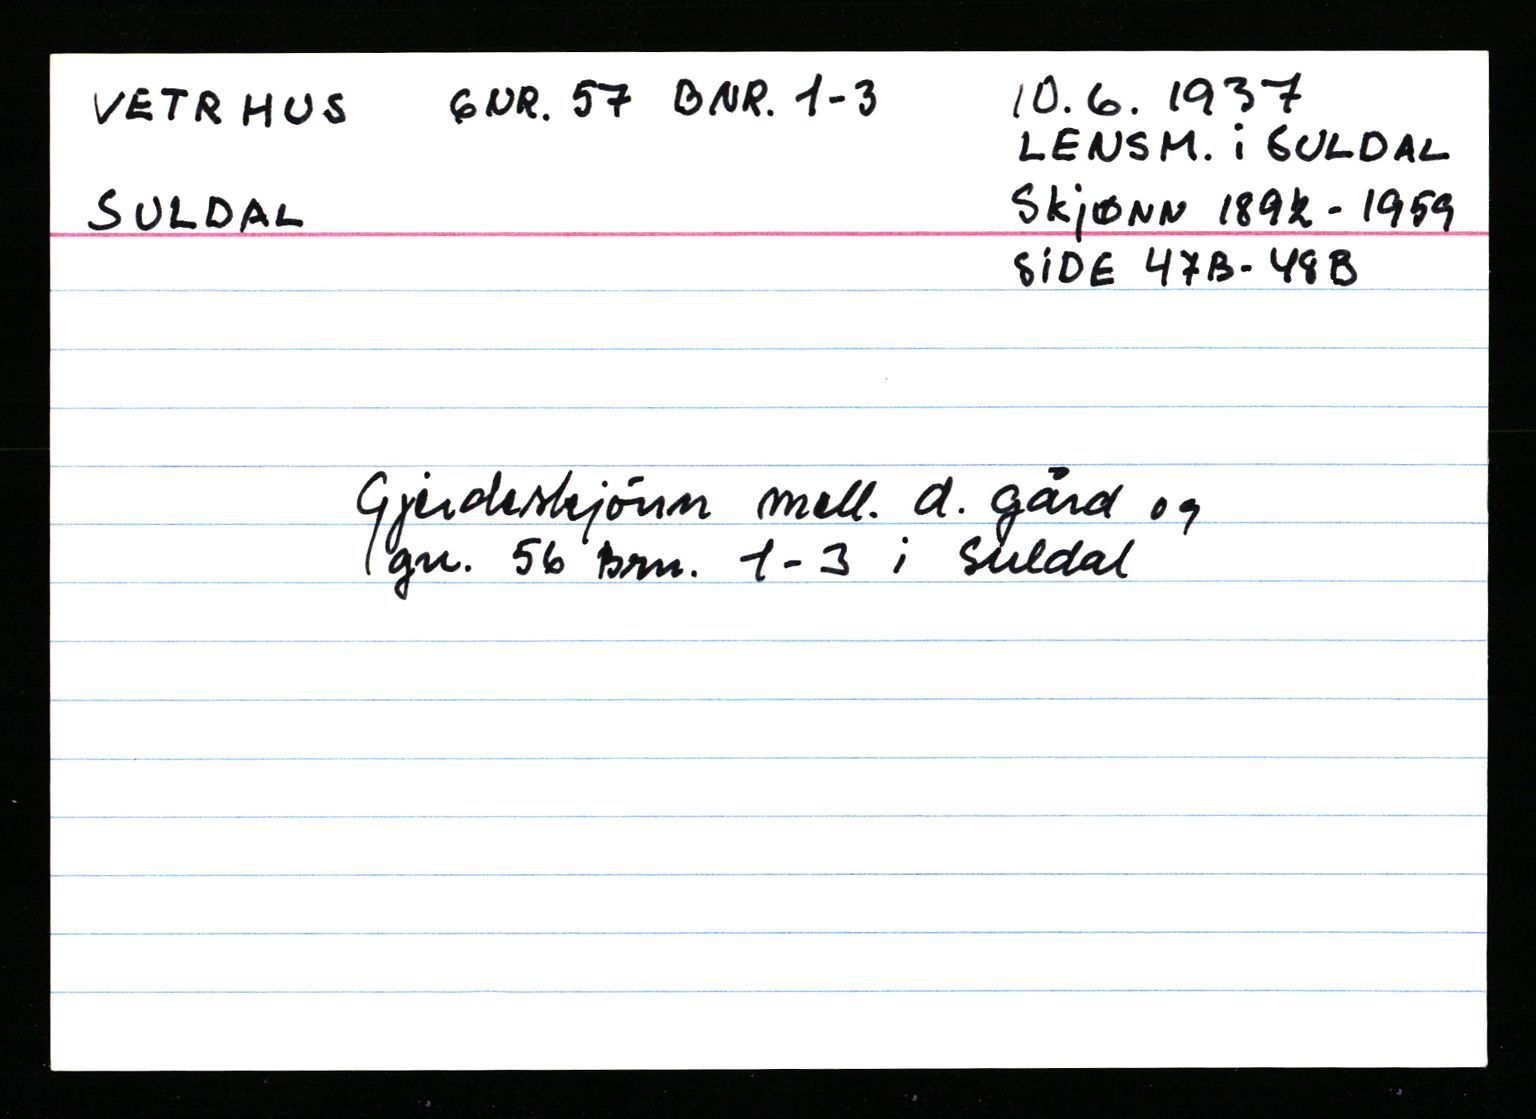 VETRHUS GNR. 57 BNR. 1-3 10.6.1937
LENSM. i SULDAL
SULDAL Skjønn 1892-1959
SiDE 47B-48B
Gjerdeskjönn mell. d. gård og
gn. 56 Brn. 1-3 i Suldal